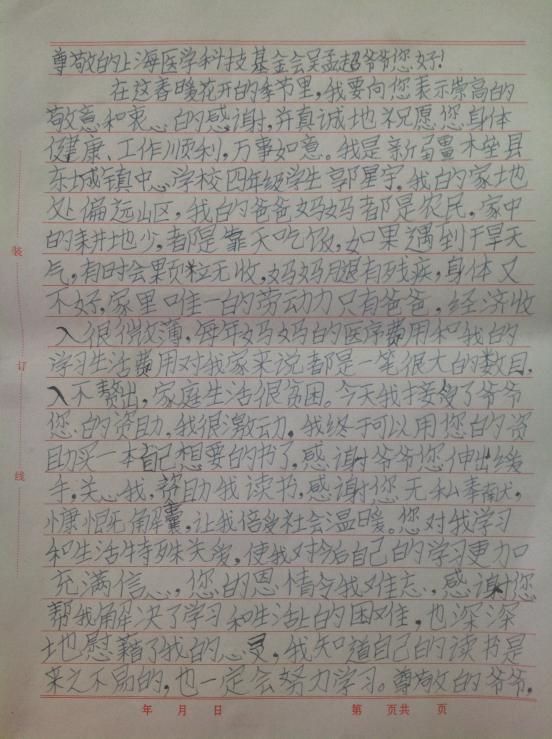 尊敬的上海医学科技基金会吴孟超爷爷您好!
在这春暖花开的季节里,我要向您表示崇高的
敬意和衷心的感谢,并真诚地祝愿您身体
健康、工作顺利,万事如意。我是新疆木垒县
东城镇中心学校四年级学生郭星宇。我的家地
处偏远山区,我的爸爸妈妈都是农民,家中
的耕地少,都是靠天吃饭,如果遇到干旱天
气,有时会颗粒无收,妈妈腿有残疾,身体又
不好,家里唯一的劳动力只有爸爸,经济收
入很微薄,每年妈妈的医疗费用和我的
学习生活费用对我家来说都是一笔很大的数目,
入不敷出,家庭生活很贫困。今天我接受了爷爷
您的资助,我很激动。我终于可以用您的资
助买一本自己想要的书了,感谢爷爷您伸出缓
手,关心我,资助我读书,感谢您无私奉献,
慷慨解囊,让我倍受社会温暖。您对我学习
和生活特殊关爱,使我对今后自己的学习更加
充满信心,您的恩情令我难忘,感谢您
帮我解决了学习和生活上的困难,也深深
地慰藉了我的心灵,我知道自己的读书是
来之不易的,也一定会努力学习。尊敬的爷爷,
装
订
线
年 月 日 第 页共 页